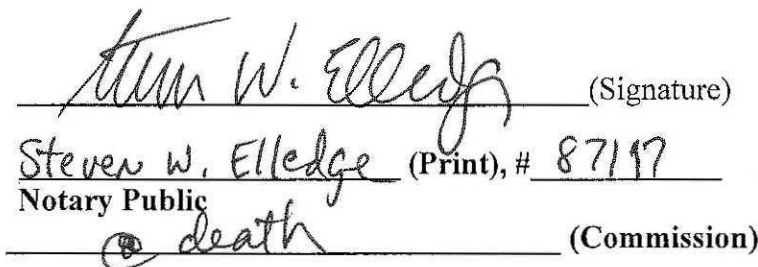 Steven W. Elledge (Signature)
Steven W. Elledge (Print), # 87197
Notary Public
@ death (Commission)